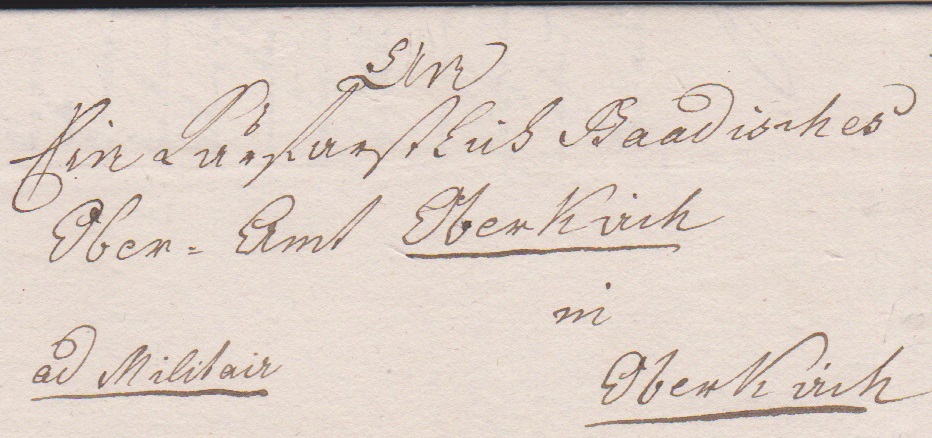 An
Ein Kurfürstlich Baadisches
Ober-Amt Oberkirch
in
ad Militair
Oberkirch